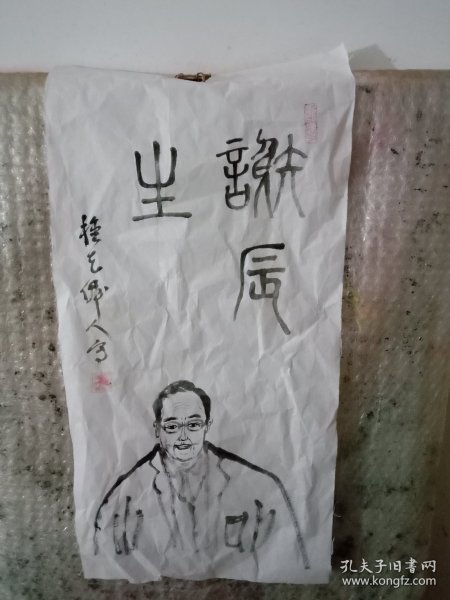 謝辰
生
種之偉人寫
孔夫子旧书网
www.kongfz.com